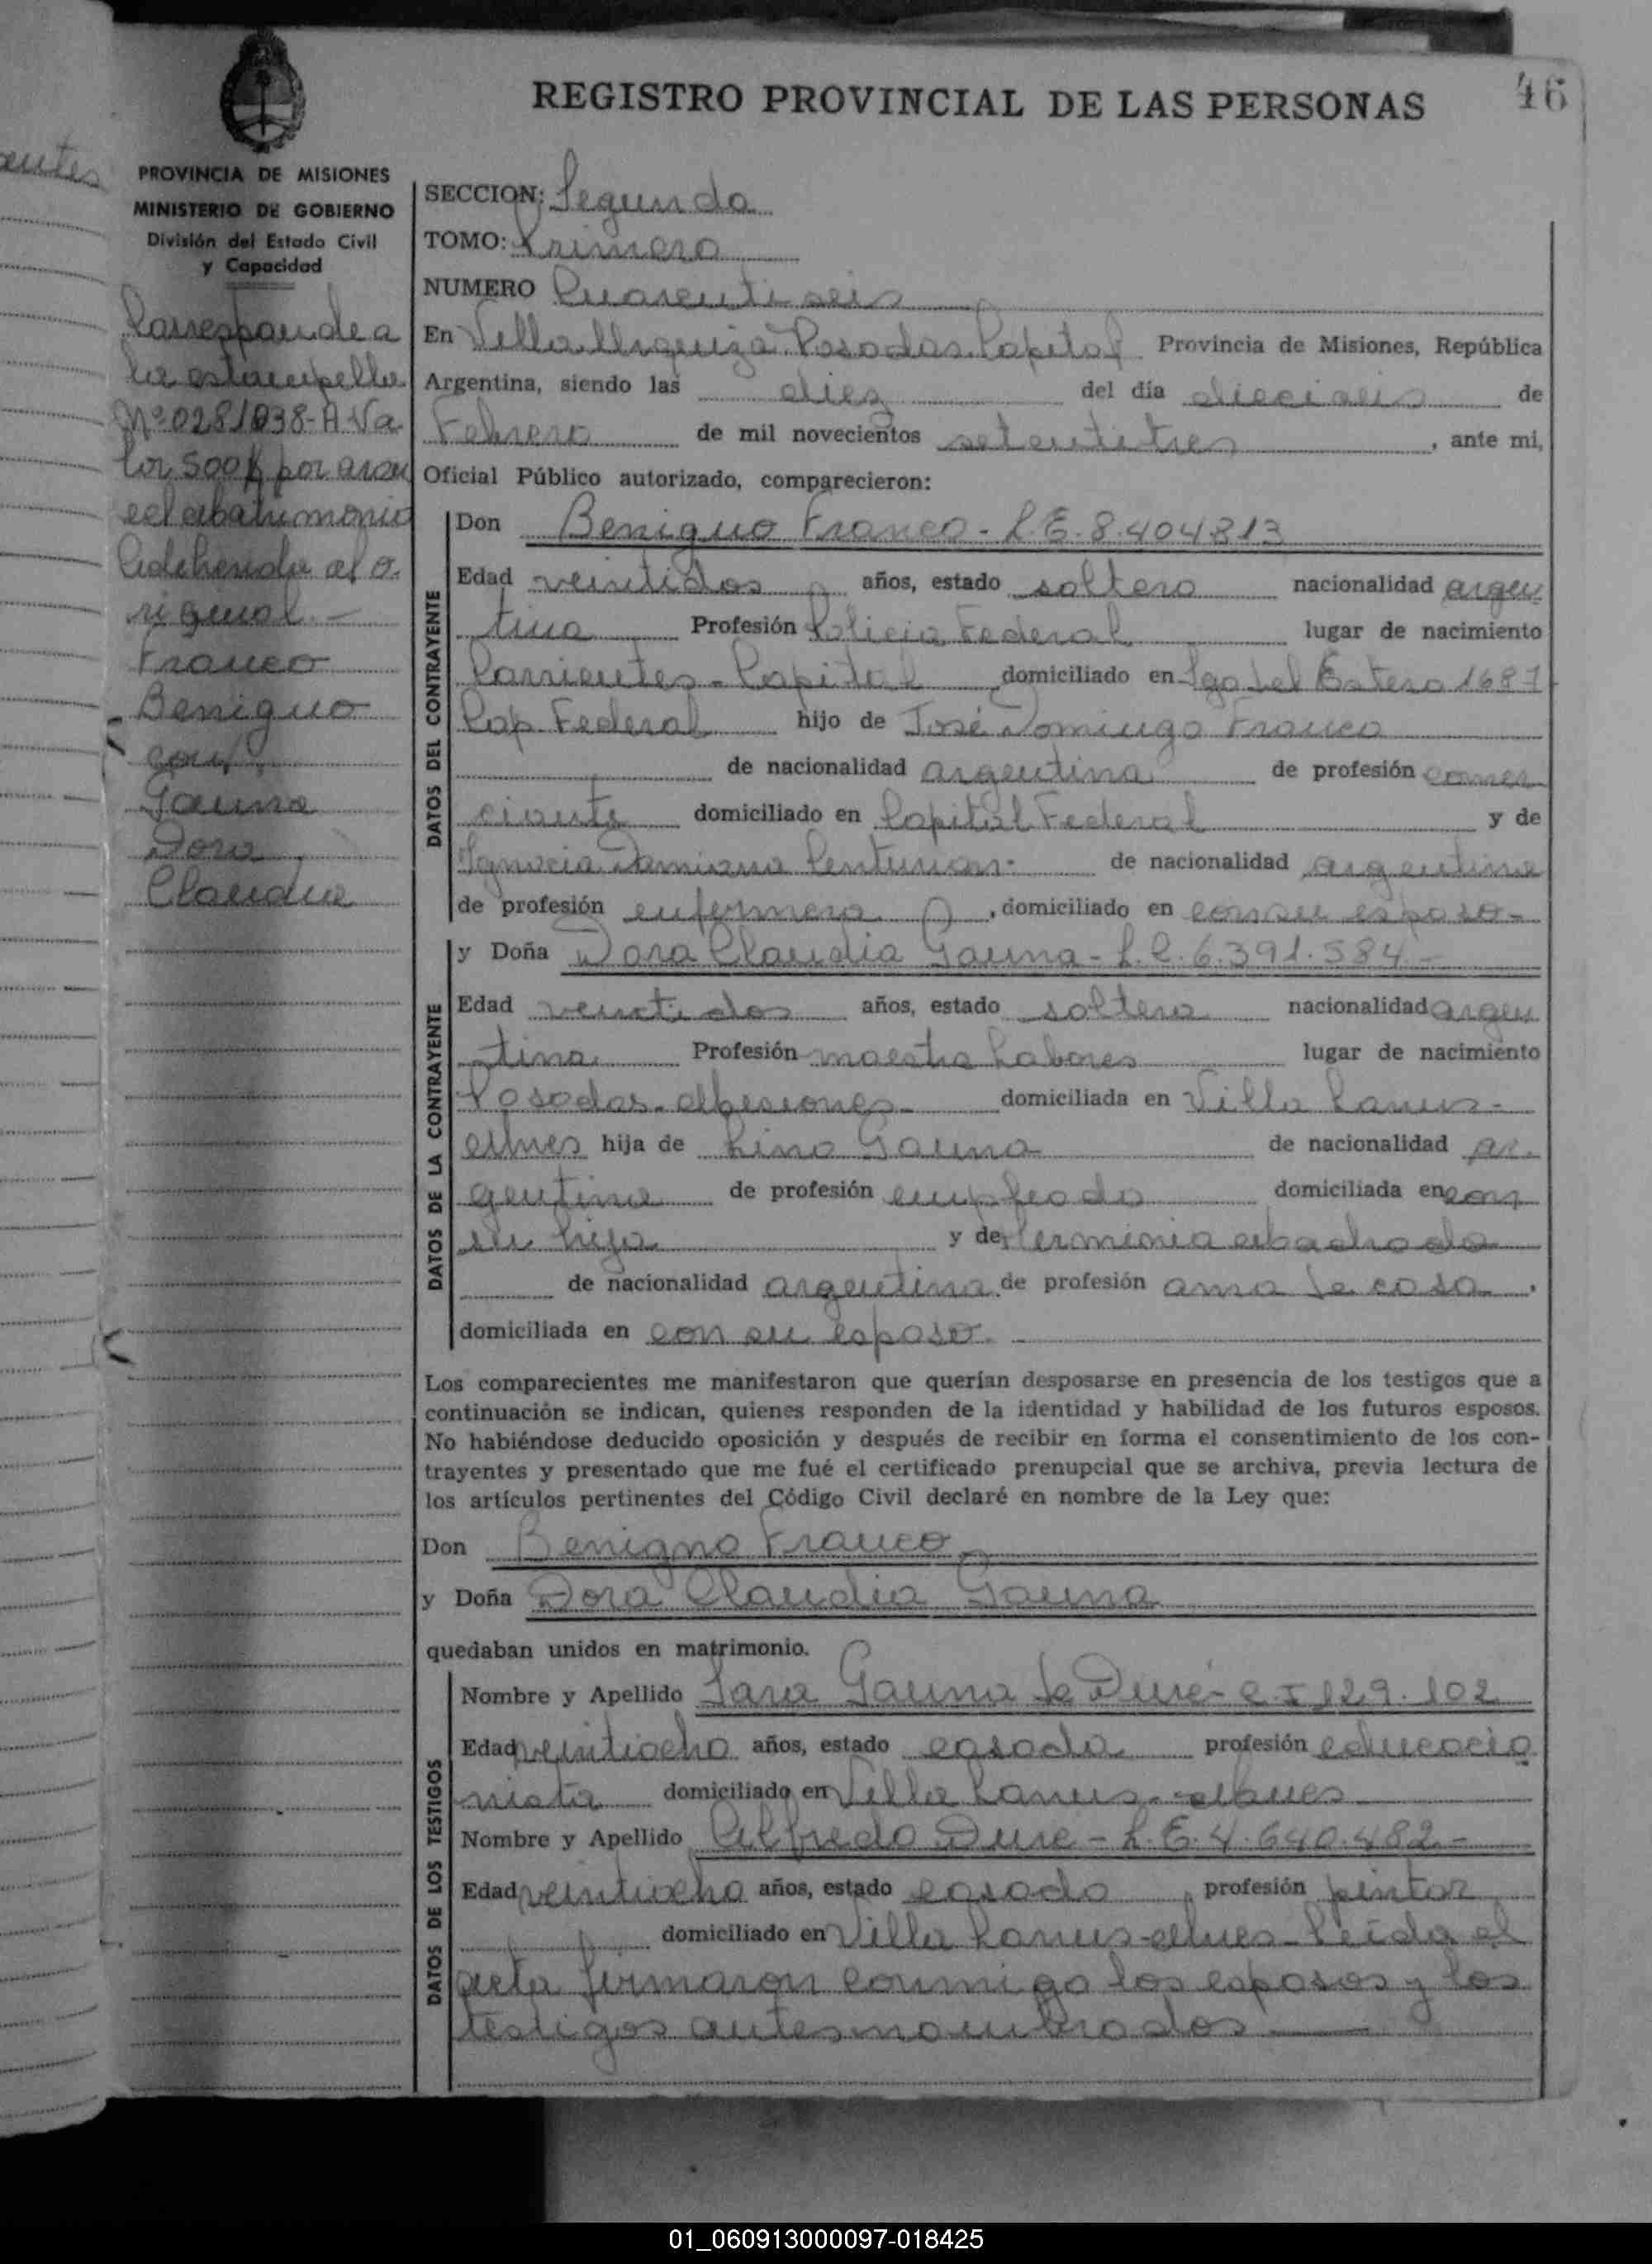 46
REGISTRO PROVINCIAL DE LAS PERSONAS
PROVINCIA DE MISIONES
MINISTERIO DE GOBIERNO
División del Estado Civil
y Capacidad
Corresponde a
la estampilla
Nº 0281038-A Va
lor 500 $ por aran
cel Matrimonio
Adherida al o-
riginal.-
Franco
Benigno
con
Gauna
Dora
Claudia
SECCION: Segunda
TOMO: Primero
NUMERO Cuarentiseis
En Villa Urquiza Posadas Capital Provincia de Misiones, República
Argentina, siendo las diez del día dieciseis de
Febrero de mil novecientos setentitres, ante mi,
Oficial Público autorizado, comparecieron:
DATOS DEL CONTRAYENTE
Don Benigno Franco - L.E. 8.404813
Edad veintidos años, estado soltero nacionalidad argen
tina Profesión Policia Federal lugar de nacimiento
Corrientes - Capital domiciliado en Sgo del Estero 1687
Cap. Federal hijo de José Domingo Franco
de nacionalidad argentina de profesión comer
ciante domiciliado en Capital Federal y de
Ignacia Damiana Centurion.- de nacionalidad argentina
de profesión enfermera, domiciliado en con su esposo-
DATOS DE LA CONTRAYENTE
y Doña Dora Claudia Gauna - L.C. 6.391.584 -
Edad veintidos años, estado soltera nacionalidad argen
tina Profesión maestra Labores lugar de nacimiento
Posadas - Misiones - domiciliada en Villa Lanus -
Mnes hija de Lino Gauna de nacionalidad ar-
gentina de profesión empleado domiciliada en con
su hija y de Herminia Machado
de nacionalidad argentina de profesión ama de casa,
domiciliada en con su esposo.
Los comparecientes me manifestaron que querían desposarse en presencia de los testigos que a
continuación se indican, quienes responden de la identidad y habilidad de los futuros esposos.
No habiéndose deducido oposición y después de recibir en forma el consentimiento de los con-
trayentes y presentado que me fué el certificado prenupcial que se archiva, previa lectura de
los artículos pertinentes del Código Civil declaré en nombre de la Ley que:
Don Benigno Franco
y Doña Dora Claudia Gauna
quedaban unidos en matrimonio.
DATOS DE LOS TESTIGOS
Nombre y Apellido Sara Gauna de Duré - C I 129.102
Edad veintiocho años, estado casada profesión educacio
nista domiciliado en Villa Lanus - Mnes
Nombre y Apellido Alfredo Dure - L.E. 4.640.482 -
Edad veintiocho años, estado casado, profesión pintor
domiciliado en Villa Lanus - Mnes - Leida el
acta firmaron conmigo los esposos y los
testigos antes nombrados
01_060913000097-018425